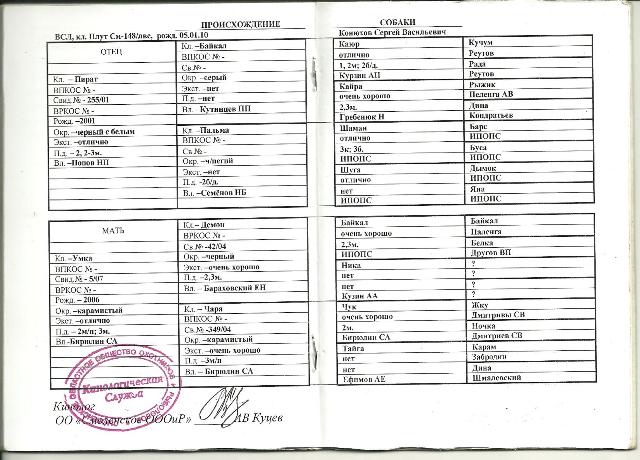 ПРОИСХОЖДЕНИЕ СОБАКИ
ВСЛ, кл. Плут См-148/лвс, рожд. 05.01.10
Конюхов Сергей Васильевич
ОТЕЦ
Кл. – Пират
ВПКОС № -
Свид.№ - 255/01
ВРКОС № -
Рожд. –2001
Окр. –черный с белым
Экст. –отлично
П.д. – 2, 2-3м.
Вл. –Попов НП
Кл. –Байкал
ВПКОС № -
Св.№ -
Окр. –серый
Экст. –нет
П.д. –нет
Вл. –Кутявцев ПП
Кл. –Пальма
ВПКОС № -
Св.№ -
Окр. –ч/пегий
Экст. –нет
П.д. -2б/д.
Вл. –Семёнов НБ
Каюр
отлично
1, 2м; 2б/д.
Курзин АП
Кайра
очень хорошо
2,3м.
Гребенюк Н
Шаман
отлично
3к; 3б.
ИПОПС
Шуга
отлично
нет
ИПОПС
Кучум
Реутов
Рада
Реутов
Рыжик
Пеленга АВ
Дина
Кондратьев
Барс
ИПОПС
Буса
ИПОПС
Дымок
ИПОПС
Яна
ИПОПС
МАТЬ
Кл. –Умка
ВПКОС № -
Свид.№ - 5/07
ВРКОС № -
Рожд. – 2006
Окр. –карамистый
Экст –отлично
П.д. – 2м/п; 3м.
Вл -Бирюлин СА
Кл. – Демон
ВРКОС № -
Св.№ -42/04
Окр. –черный
Экст. –очень хорошо
П.д. –2,3м.
Вл. – Бараховский ЕН
Кл. – Чара
ВПКОС № -
Св.№ -349/04
Окр. –карамистый
Экст. –очень хорошо
П.д. –3м/п
Вл. – Бирюлин СА
Байкал
очень хорошо
2,3м.
ИПОПС
Ника
нет
нет
Кузин АА
Чук
очень хорошо
2м.
Бирюлин СА
Тайга
нет
нет
Ефимов АЕ
Байкал
Цаленга
Белка
Другов ВП
?
?
?
?
Жку
Дмитривы СВ
Ночка
Дмитриев СВ
Карам
Забродин
Дина
Шмалевский
ОБЛАСТНОЕ ОБЩЕСТВО ОХОТНИКОВ И
Кинологическая
Служба
Кинолог
ОО «Смоленское ОООиР» АВ Куцев